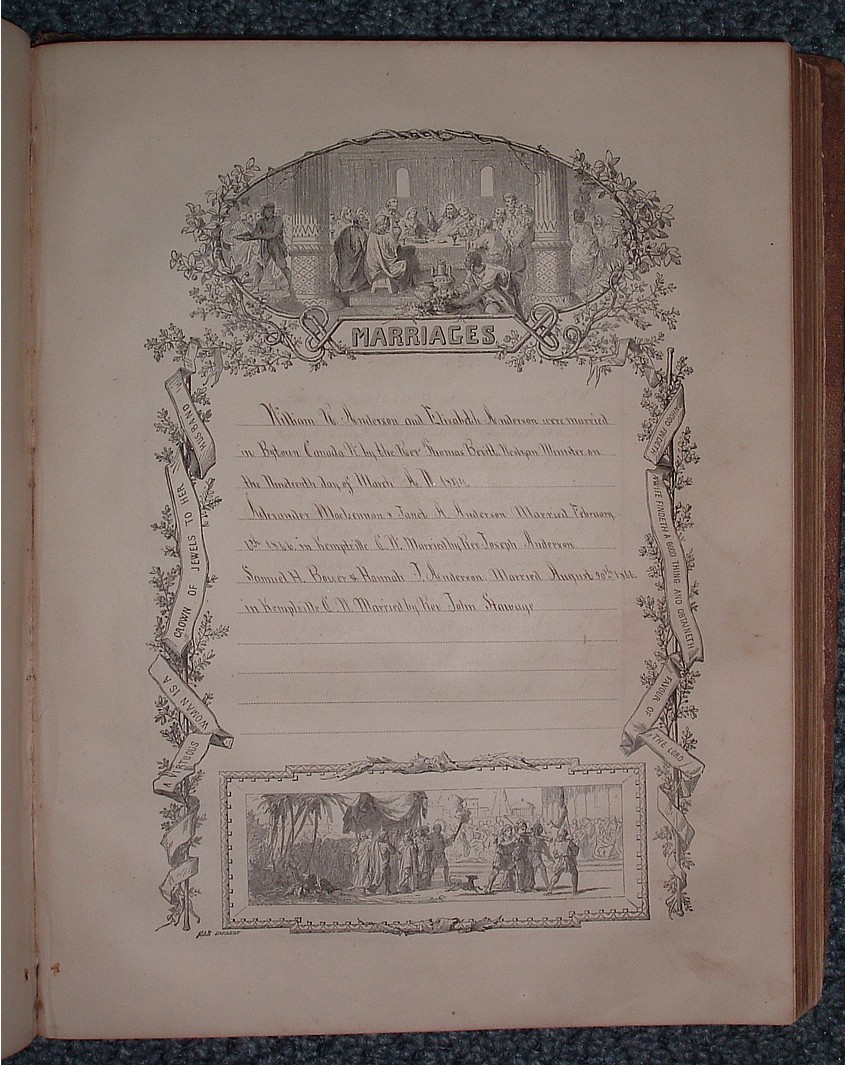 MARRIAGES
HUSBAND
CROWN OF JEWELS TO HER
WOMAN IS A
A VIRTUOUS
WHOSO FINDETH
A WIFE FINDETH A GOOD THING AND OBTAINETH
FAVOUR OF
THE LORD
William Anderson and Elizabeth Anderson were married
in Bytown Canada W. by the Rev Thomas Wesleyan Minister on
the day of March A. D.
Alexander & Janet Anderson Married February
in Kemptville C. W. Married by Rev Joseph Anderson
Samuel H. & Hannah J. Anderson Married August 30th
in Kemptville C. W. Married by Rev John